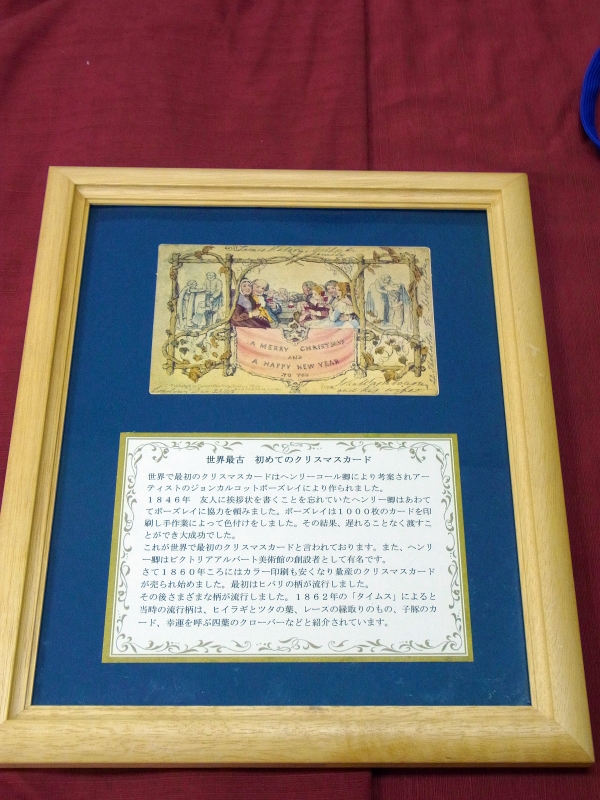 A MERRY CHRISTMAS
AND
A HAPPY NEW YEAR
TO YOU
世界最古　初めてのクリスマスカード
世界で最初のクリスマスカードはヘンリーコール卿により考案されアー
ティストのジョンカルコットボーズレイにより作られました。
１８４６年　友人に挨拶状を書くことを忘れていたヘンリー卿はあわて
てボーズレイに協力を頼みました。ボーズレイは１０００枚のカードを印
刷し手作業によって色付けをしました。その結果、遅れることなく渡すこ
とができ大成功でした。
これが世界で最初のクリスマスカードと言われております。また、ヘンリ
ー卿はビクトリアアルバート美術館の創設者として有名です。
さて１８６０年ころにはカラー印刷も安くなり量産のクリスマスカード
が売られ始めました。最初はヒバリの柄が流行しました。
その後さまざまな柄が流行しました。１８６２年の「タイムス」によると
当時の流行柄は、ヒイラギとツタの葉、レースの縁取りのもの、子豚のカ
ード、幸運を呼ぶ四葉のクローバーなどと紹介されています。